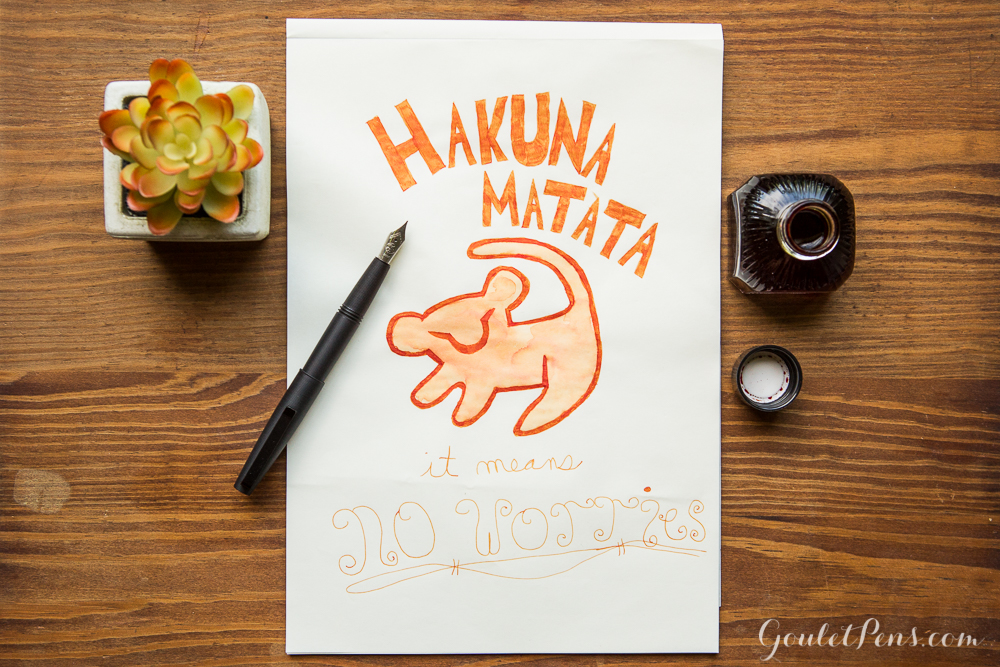 HAKUNA
MATATA
it means
NO WORRiES
GouletPens.com